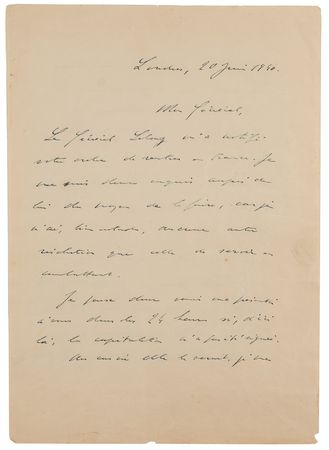 Londres, 20 Juin 1940.
Mon Général,
Le Général Lelong m'a notifié
votre ordre de rentrer en France. Je
me suis donc enquis auprès de
lui du moyen de le faire, car je
n'ai, bien entendu, aucune autre
résolution que celle de servir en
combattant.
Je pense donc venir me présenter
à vous dans les 24 heures si, d'ici
là, la capitulation n'a pas été signée.
Au cas où elle le serait, je me